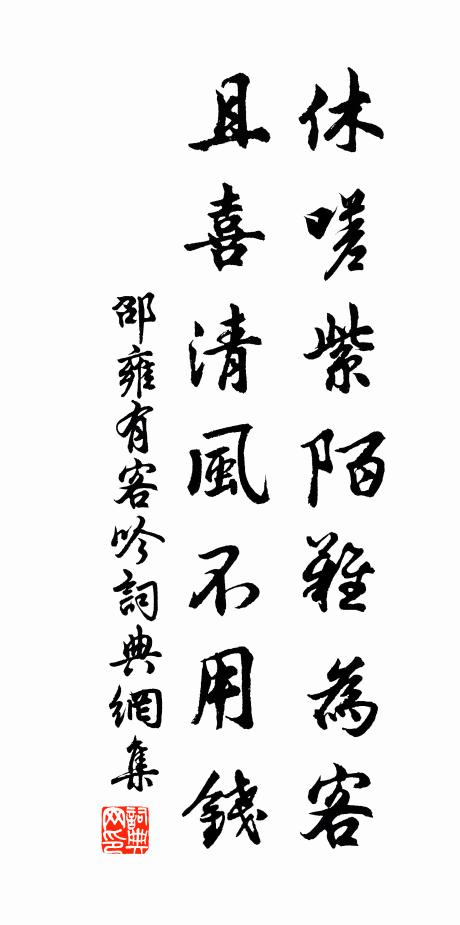 休嗟紫陌難為客
且喜清風不用錢
邵雍有客吟詞典網集
詞典網印